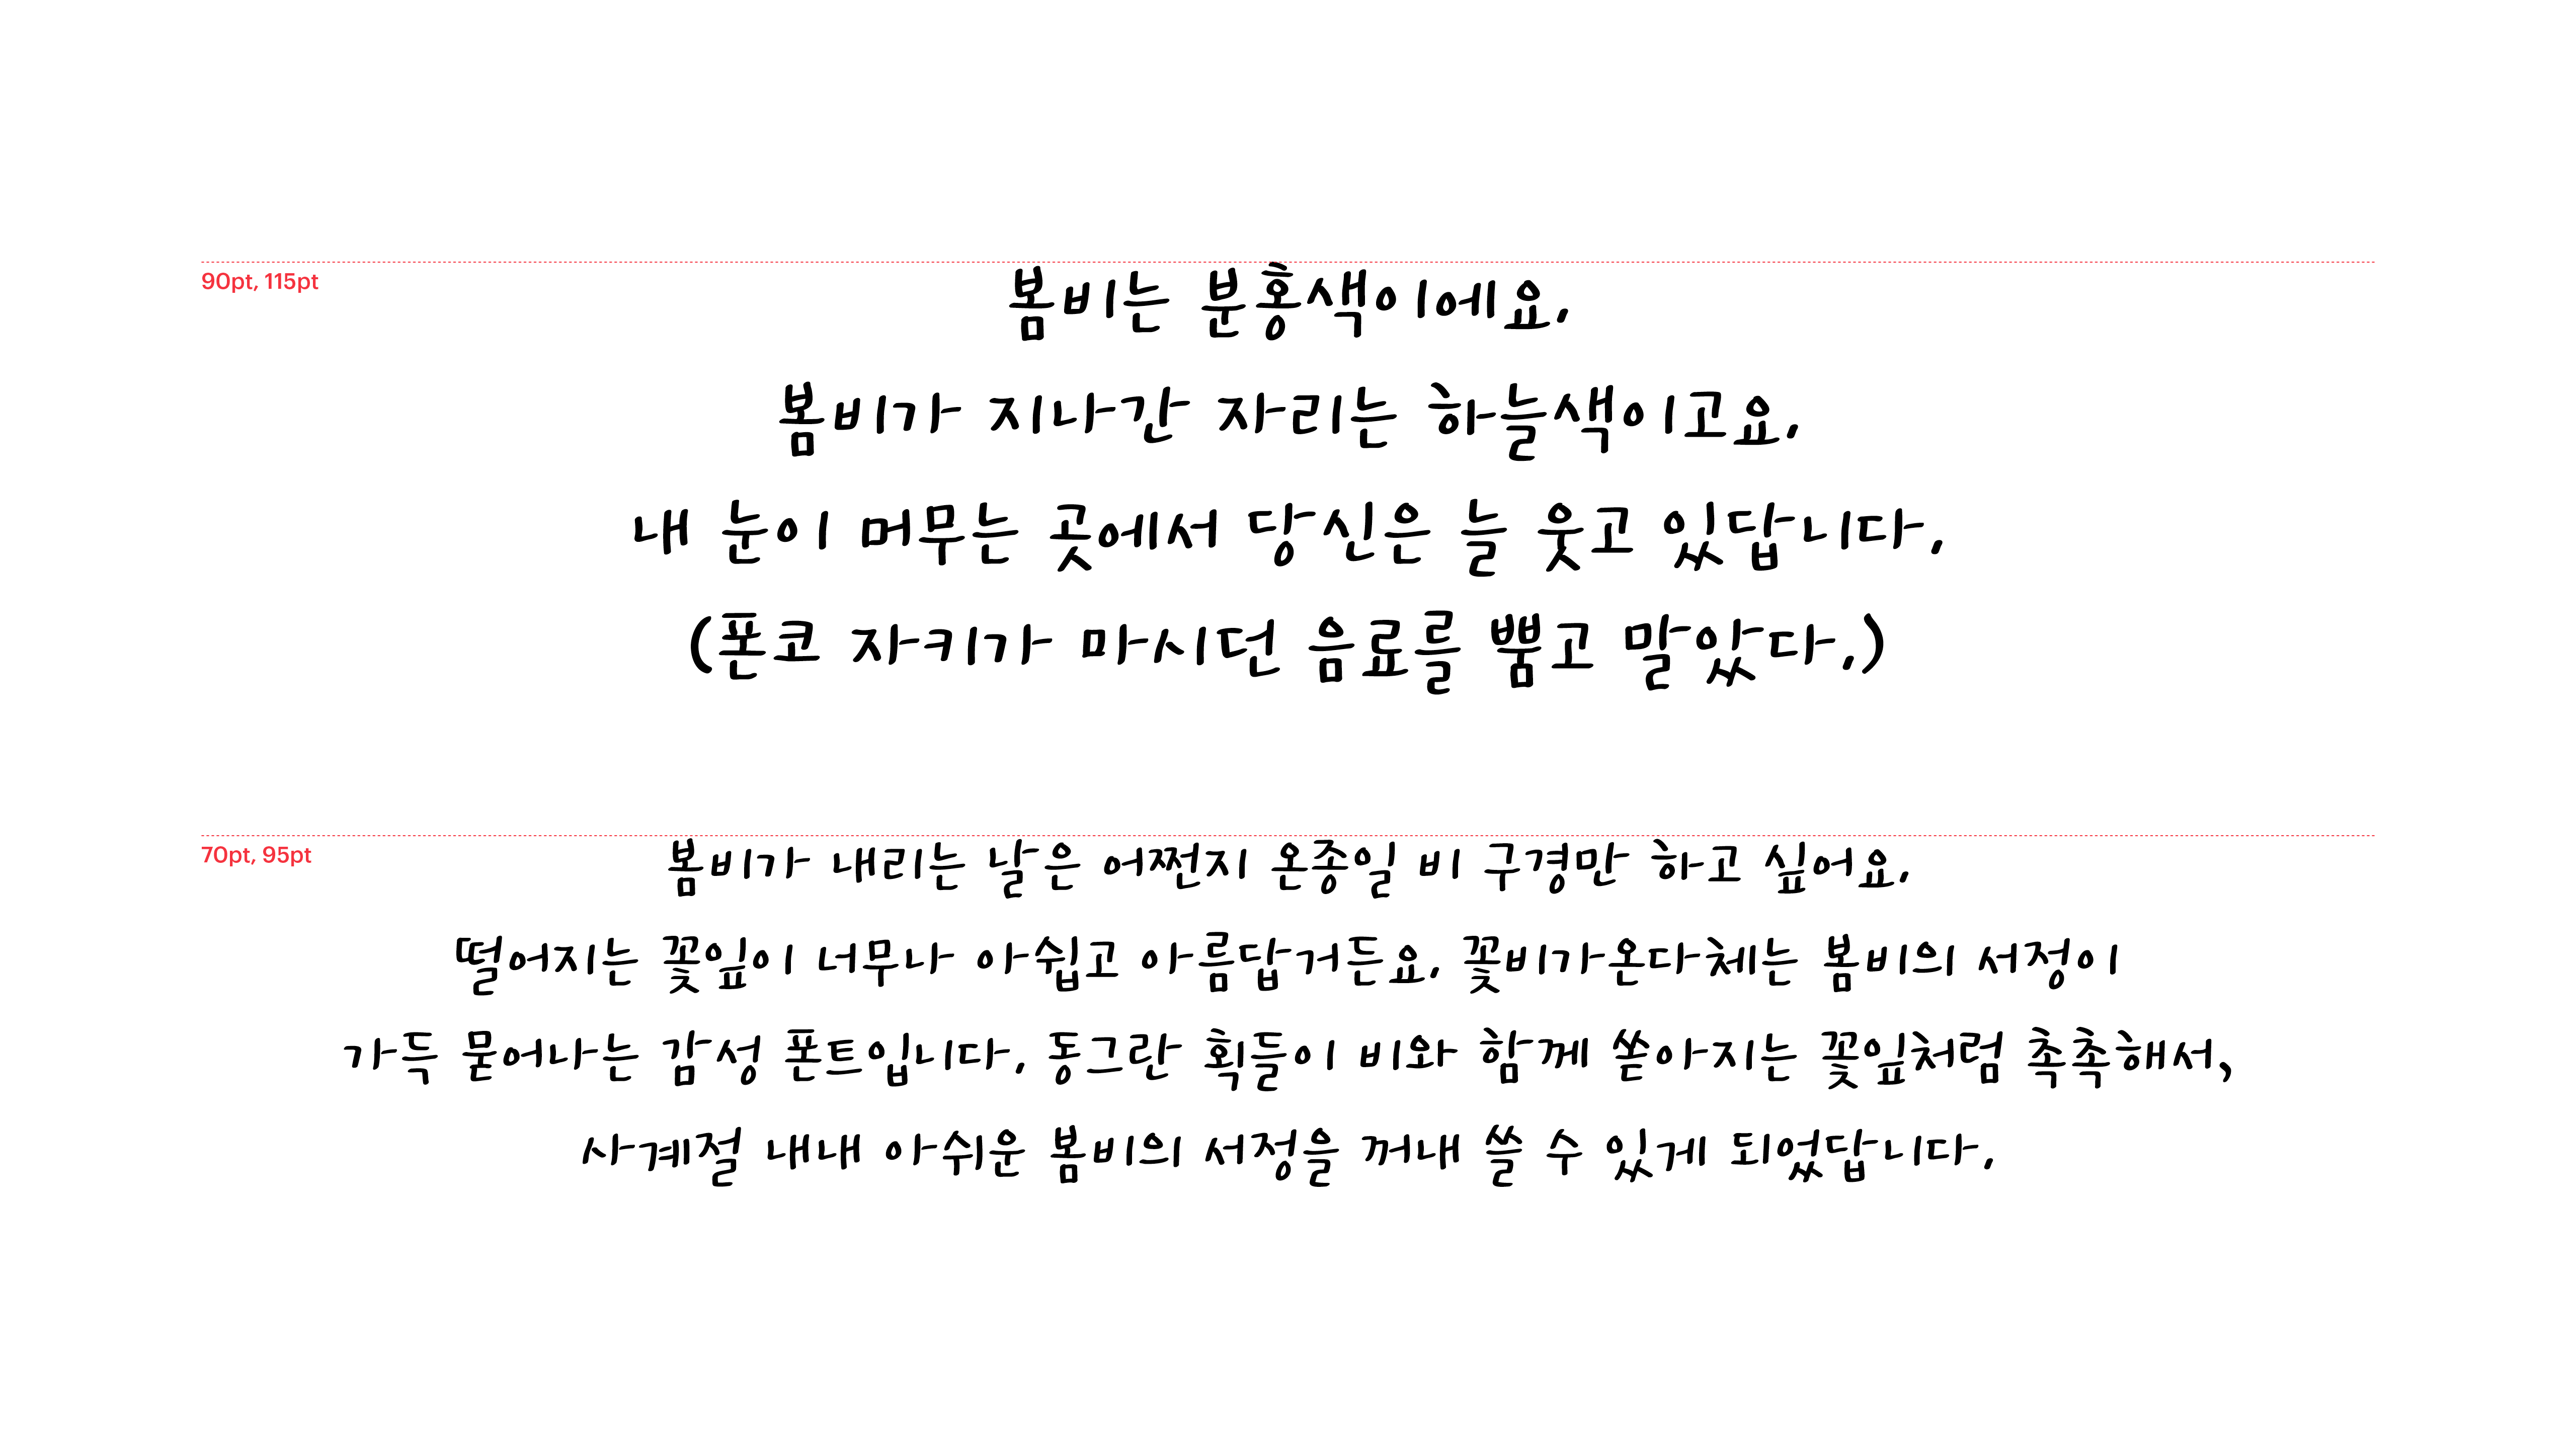 90pt, 115pt
봄비는 분홍색이에요.
봄비가 지나간 자리는 하늘색이고요.
내 눈이 머무는 곳에서 당신은 늘 웃고 있답니다.
(폰코 자키가 마시던 음료를 뿜고 말았다.)
70pt, 95pt
봄비가 내리는 날은 어쩐지 온종일 비 구경만 하고 싶어요.
떨어지는 꽃잎이 너무나 아쉽고 아름답거든요. 꽃비가온다체는 봄비의 서정이
가득 묻어나는 감성 폰트입니다. 동그란 획들이 비와 함께 쏟아지는 꽃잎처럼 촉촉해서,
사계절 내내 아쉬운 봄비의 서정을 꺼내 쓸 수 있게 되었답니다.